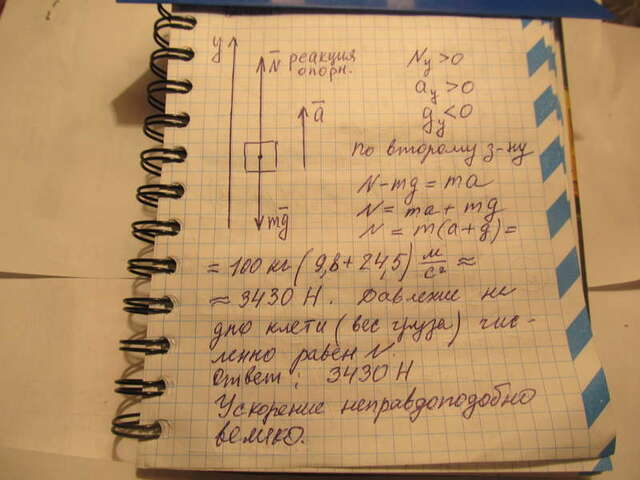 y
N̅ реакция
опорн.
a̅
mg̅
Ny>0
ay>0
gy<0
По второму з-ну
N-mg=ma
N=ma+mg
N=m(a+g)=
=100 кг(9,8+24,5) м/с² ≈
≈3430 Н. Давление на
дно клети (вес груза) чис-
ленно равен N.
Ответ: 3430 Н
Ускорение неправдоподобно
велико.